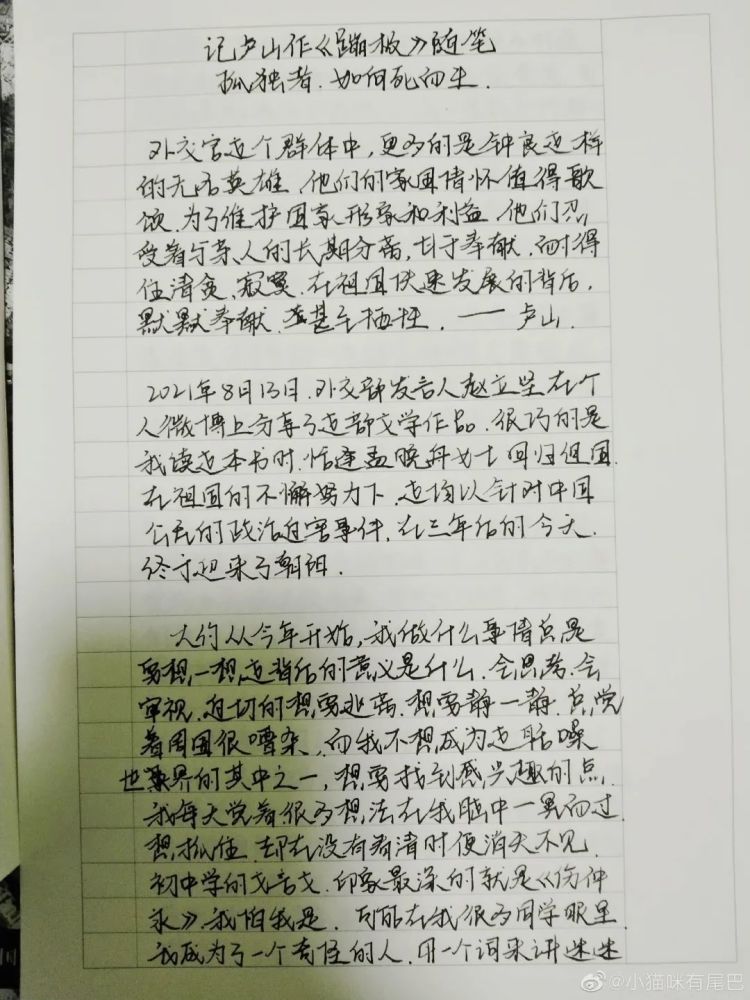 记卢山作《蹦极》随笔
孤独者.如何死而生.
外交官这个群体中，更多的是钟良这样
的无名英雄.他们的家国情怀值得歌
颂.为了维护国家形象和利益.他们忍
受着与亲人的长期分离，甘于奉献.耐得
住清贫、寂寞.在祖国快速发展的背后，
默默奉献.甚至牺牲. —— 卢山.
2021年8月13日.外交部发言人赵立坚在个
人微博上分享了这部文学作品.很巧的是
我读这本书时.恰逢孟晚舟女士回归祖国.
在祖国的不懈努力下.这场以针对中国
公民的政治迫害事件.在三年后的今天.
终于迎来了朝阳.
大约从今年开始，我做什么事情总是
要想一想这背后的意义是什么.会思考.会
审视.迫切的想要逃离.想要静一静.总觉
着周围很嘈杂.而我不想成为这聒噪
世界的其中之一，想要找到感兴趣的点.
我每天觉着很多想法在我脑中一晃而过.
想抓住.却在没有看清时便消失不见.
初中学的文言文.印象最深的就是《伤仲
永》.我怕我是.可能在我很多同学眼里.
我成为了一个奇怪的人.用一个词来讲迷迷
@小猫咪有尾巴